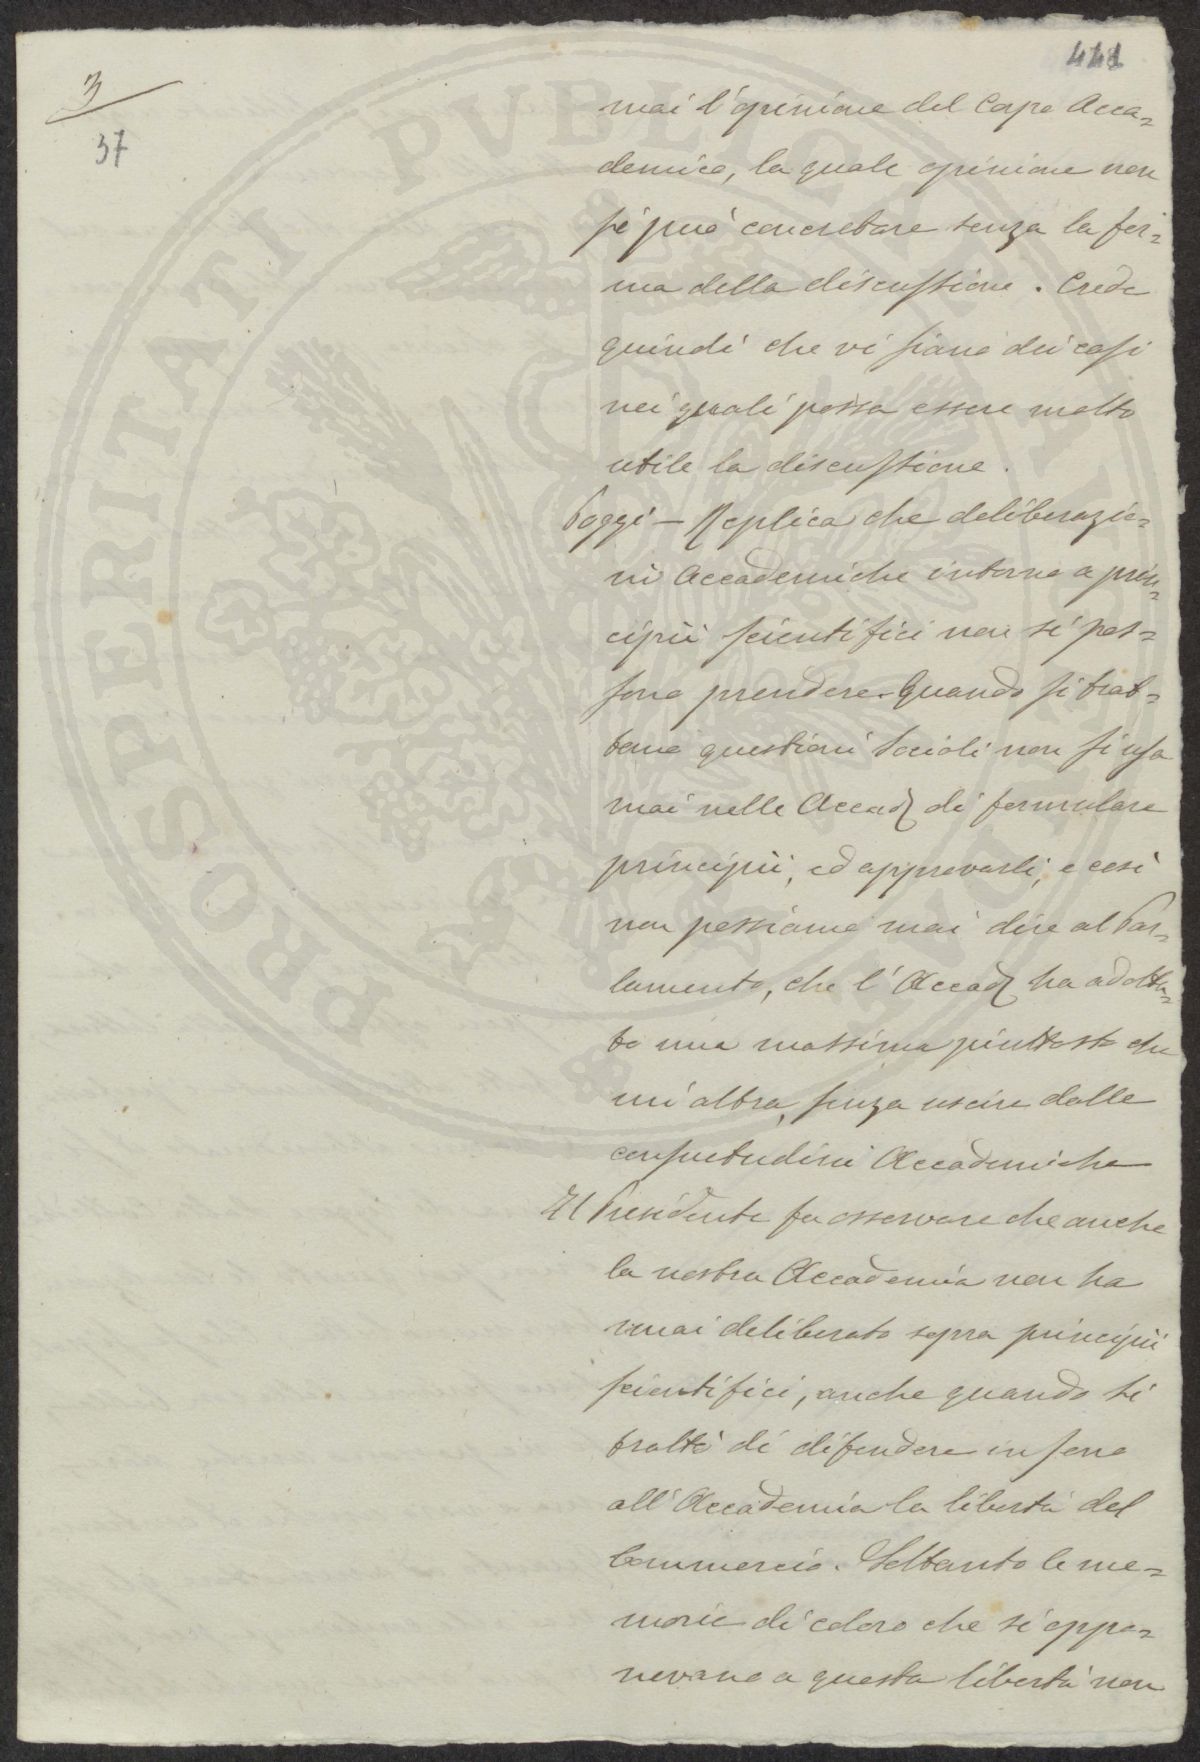 441
3
37
mai l'opinione del Corpo Acca=
demico, la quale opinione non
si può concretare senza la for=
ma della discussione. Crede
quindi che vi siano dei casi
nei quali possa essere molto
utile la discussione.
Poggi — Replica che deliberazio=
ni Accademiche intorno a prin=
cipii scientifici non si pos=
sono prendere. Quando si trat=
tano questioni sociali non si usa
mai nelle Accad di formulare
principii, ed approvarli, e così
non possiamo mai dire al Par=
lamento, che l'Accad ha adotta=
to una massima piuttosto che
un'altra, senza uscire dalle
consuetudini Accademiche
Il Presidente fa osservare che anche
la nostra Accademia non ha
mai deliberato sopra principii
scientifici, anche quando si
trattò di difendere in seno
all'Accademia la libertà del
Commercio. Soltanto le me=
morie di coloro che si oppo=
nevano a questa libertà non
PROSPERITATI PVBLICAE